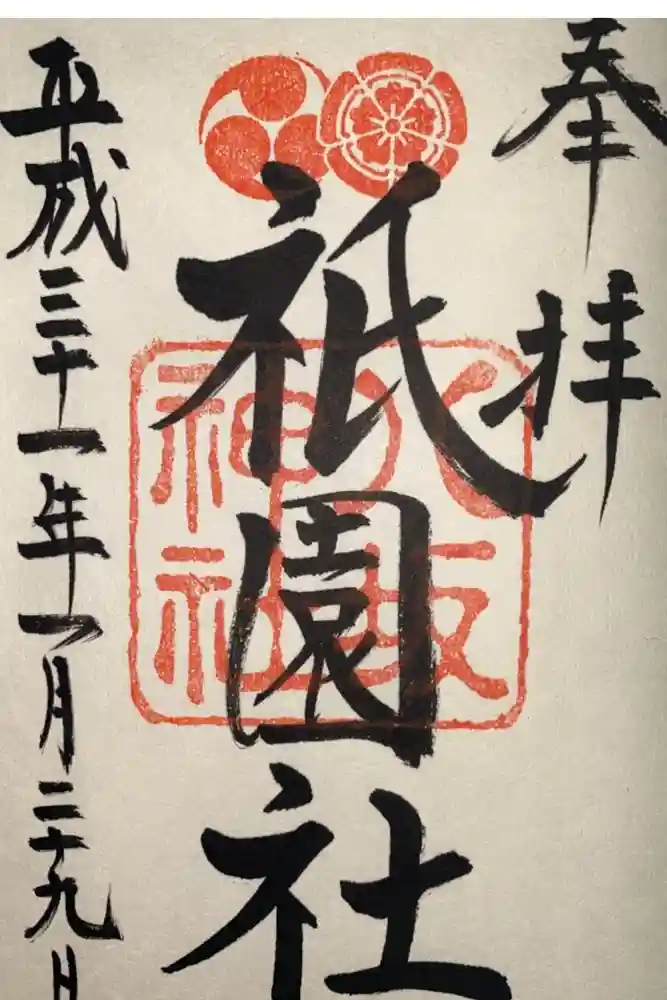 奉拝
八坂神社
祇園社
平成三十一年一月二十九日